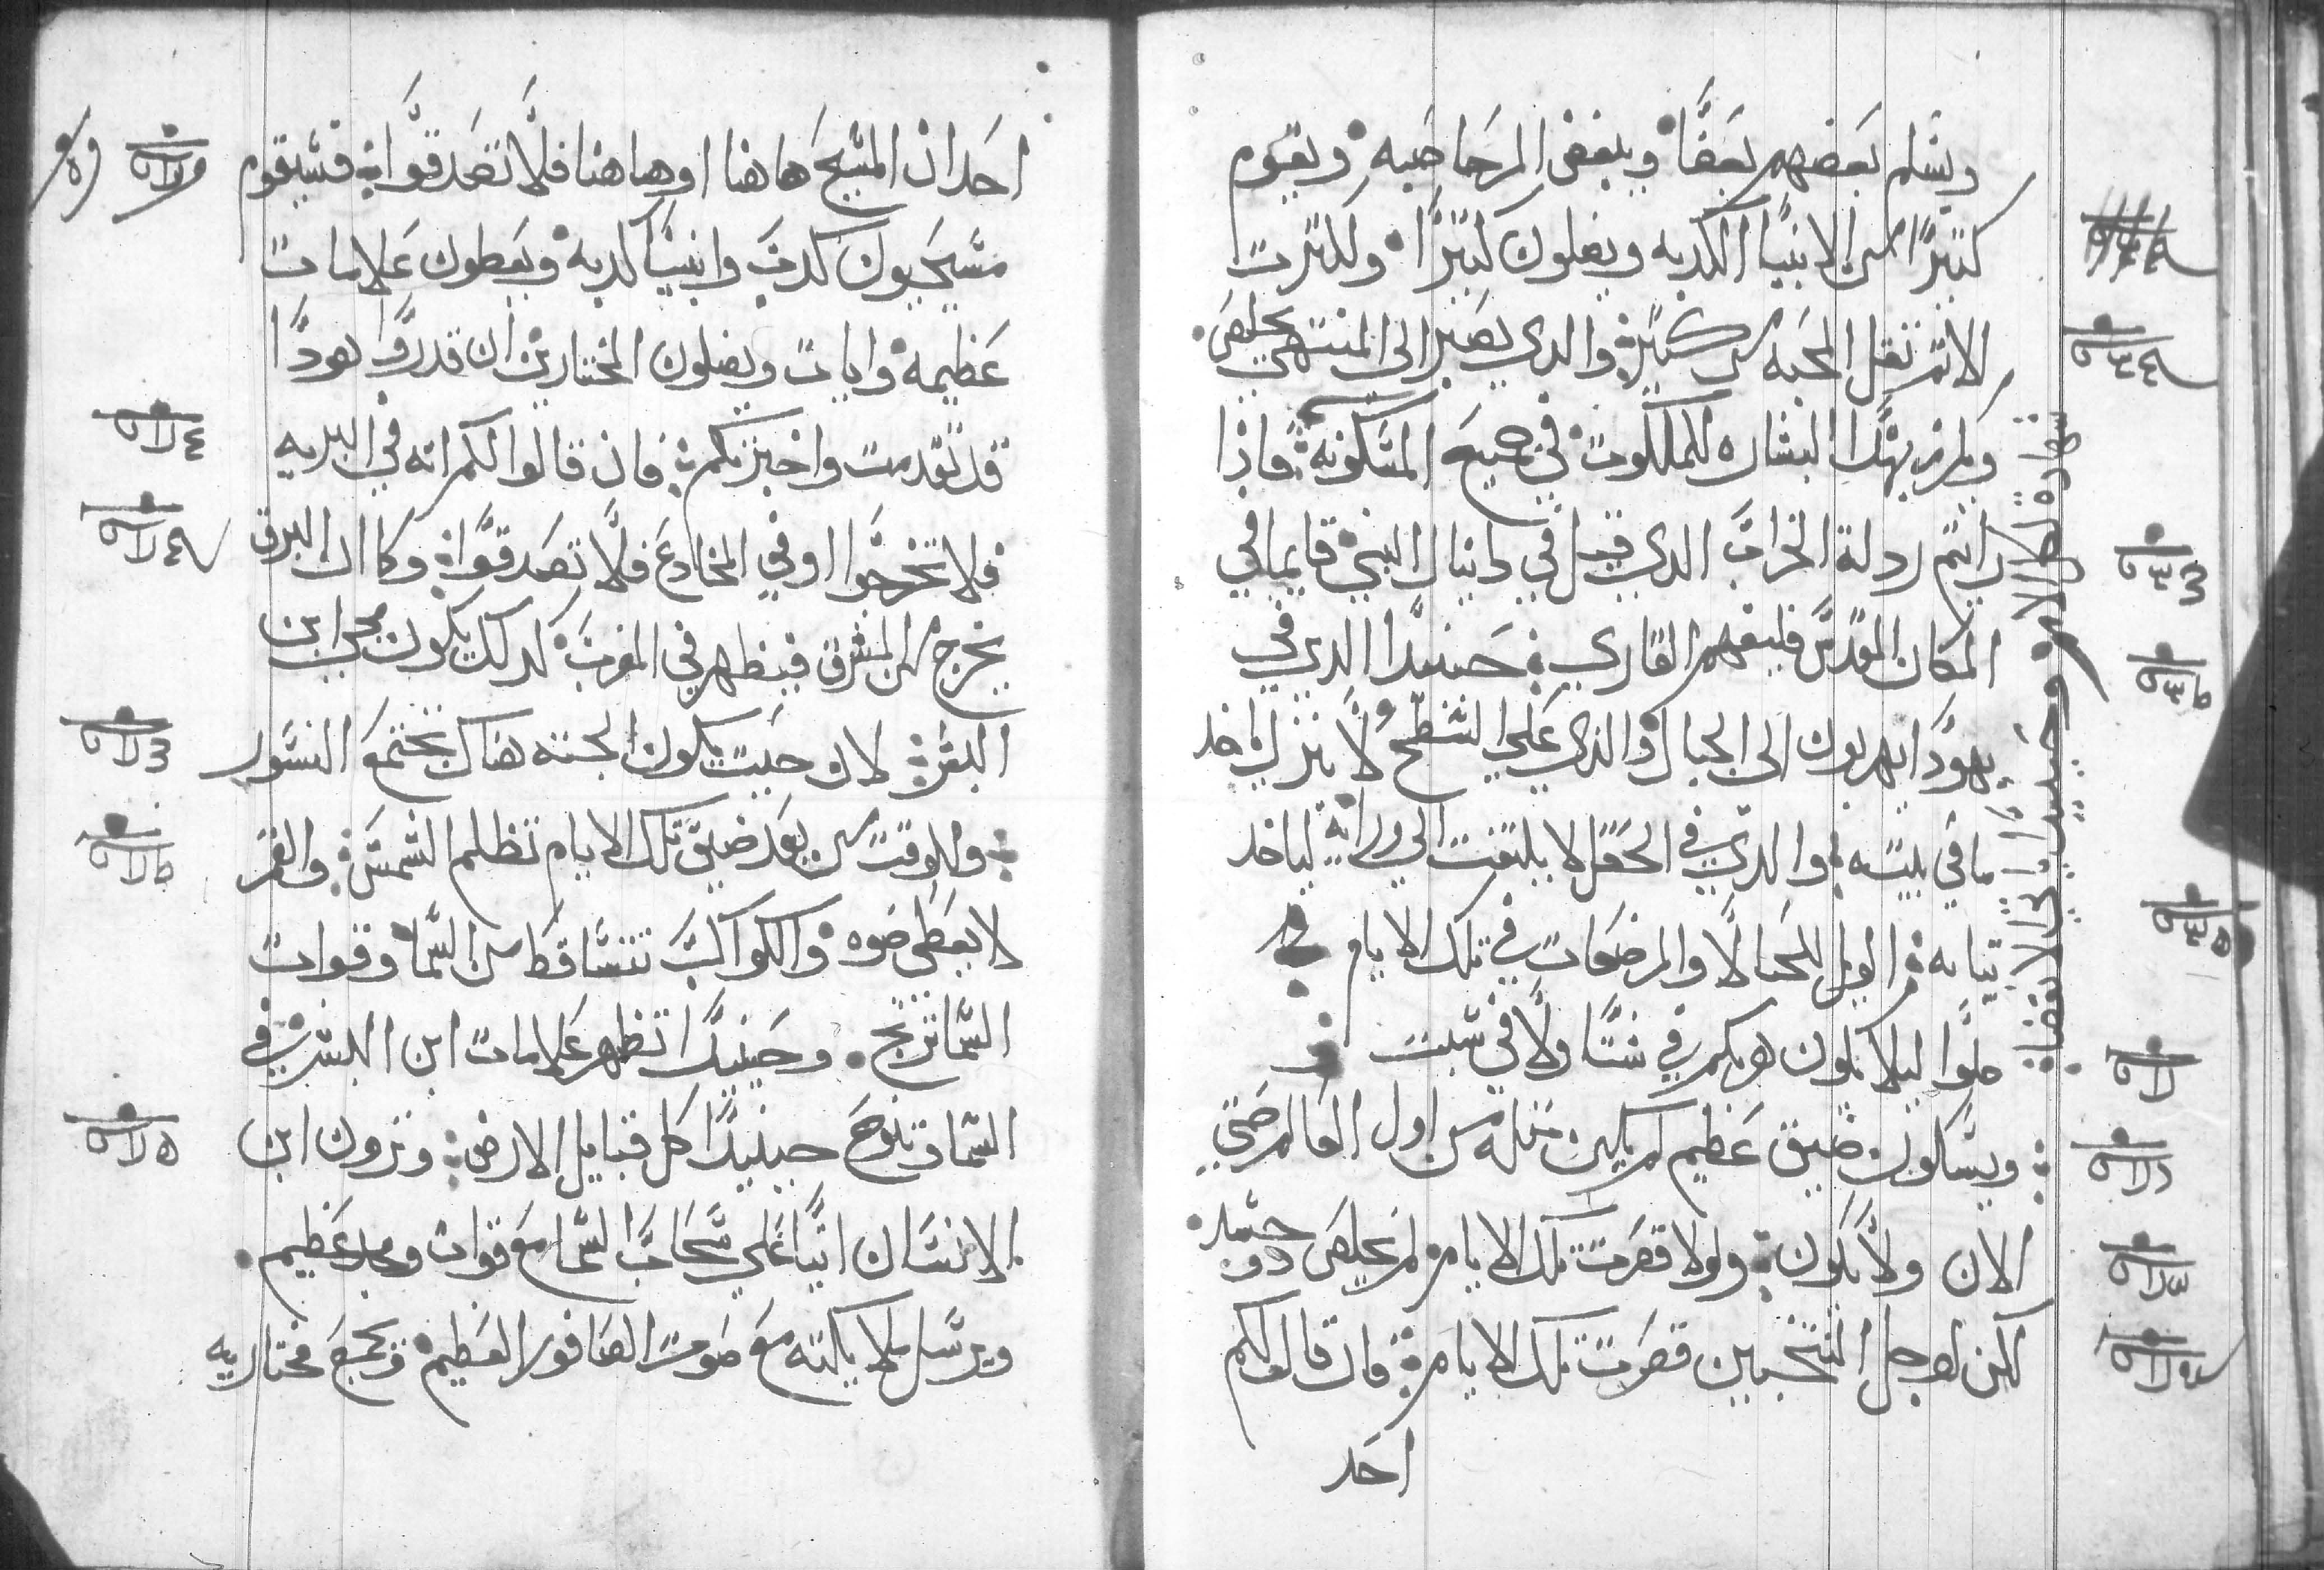 ويسلم بعضهم بعضًا ويبغض المر صاحبه ويقوم
كتيرًا من الانبيا الكدبه ويضلون كتيرًا ولكترت
الاتم تقل المحبه من كتير والدي يصبر الى المنتهي يخلص
ويكرز بهدا البشاره للملكوت في جميع المسكونه فاذا
رايتم ردلة الخراب الدي قيل في دانيال النبي قايما في
المكان المقدس فليفهم القاري حينيدًا الدين في
يهودا يهربون الى الجبال والذي علي السطح لا ينزل ياخد
ما في بيته والدي في الحقل لا يلتفت الي ورايه لياخد
تيابه الويل للحبالا والمرضعات في تلك الايام
صلوا ليلا يكون هربكم في شتا ولا في سبت
ويسكون ضيق عظيم لم يكين متله من اول العالم حتي
الان ولا يكون ولولا قصرت تلك الايام لم يخلص دو جسد
لكن لاجل المنتخبين قصرت تلك الايام فان قال لكم
احد
شهاده لكل الامم وحينيدًا ياتي الانقضا
احد ان المسيح هاهنا او هاهنا فلا تصدقوا فسيقوم
مسيحيون كدبه وانبيا كدبه ويعطون علامات
عظيمه وايات ويضلون المختارين ان قدروا هودا
قد تقدمت واخبرتكم فان قالوا لكم انه في البريه
فلا تخرجوا او في المخادع فلا تصدقوا وكما ان البرق
يخرج من المشرق فيظهر في المغرب كدلك يكون مجي ابن
البشر لان حيت يكون الجته هناك تجتمع النسور
وللوقت من بعد ضيق تلك الايام تظلم الشمس والقمر
لا يعطي ضوه والكواكب تتساقط من السما وقوات
السما ترتج وحينيدًا تظهر علامات ابن البشر في
السما وتنوح حينيدًا كل قبايل الارض وترون ابن
الانسان اتيًا علي سحاب السما مع قوات ومجد عظيم
ويرسل ملايكته مع صوت الصافور العظيم وتجمع مختاريه